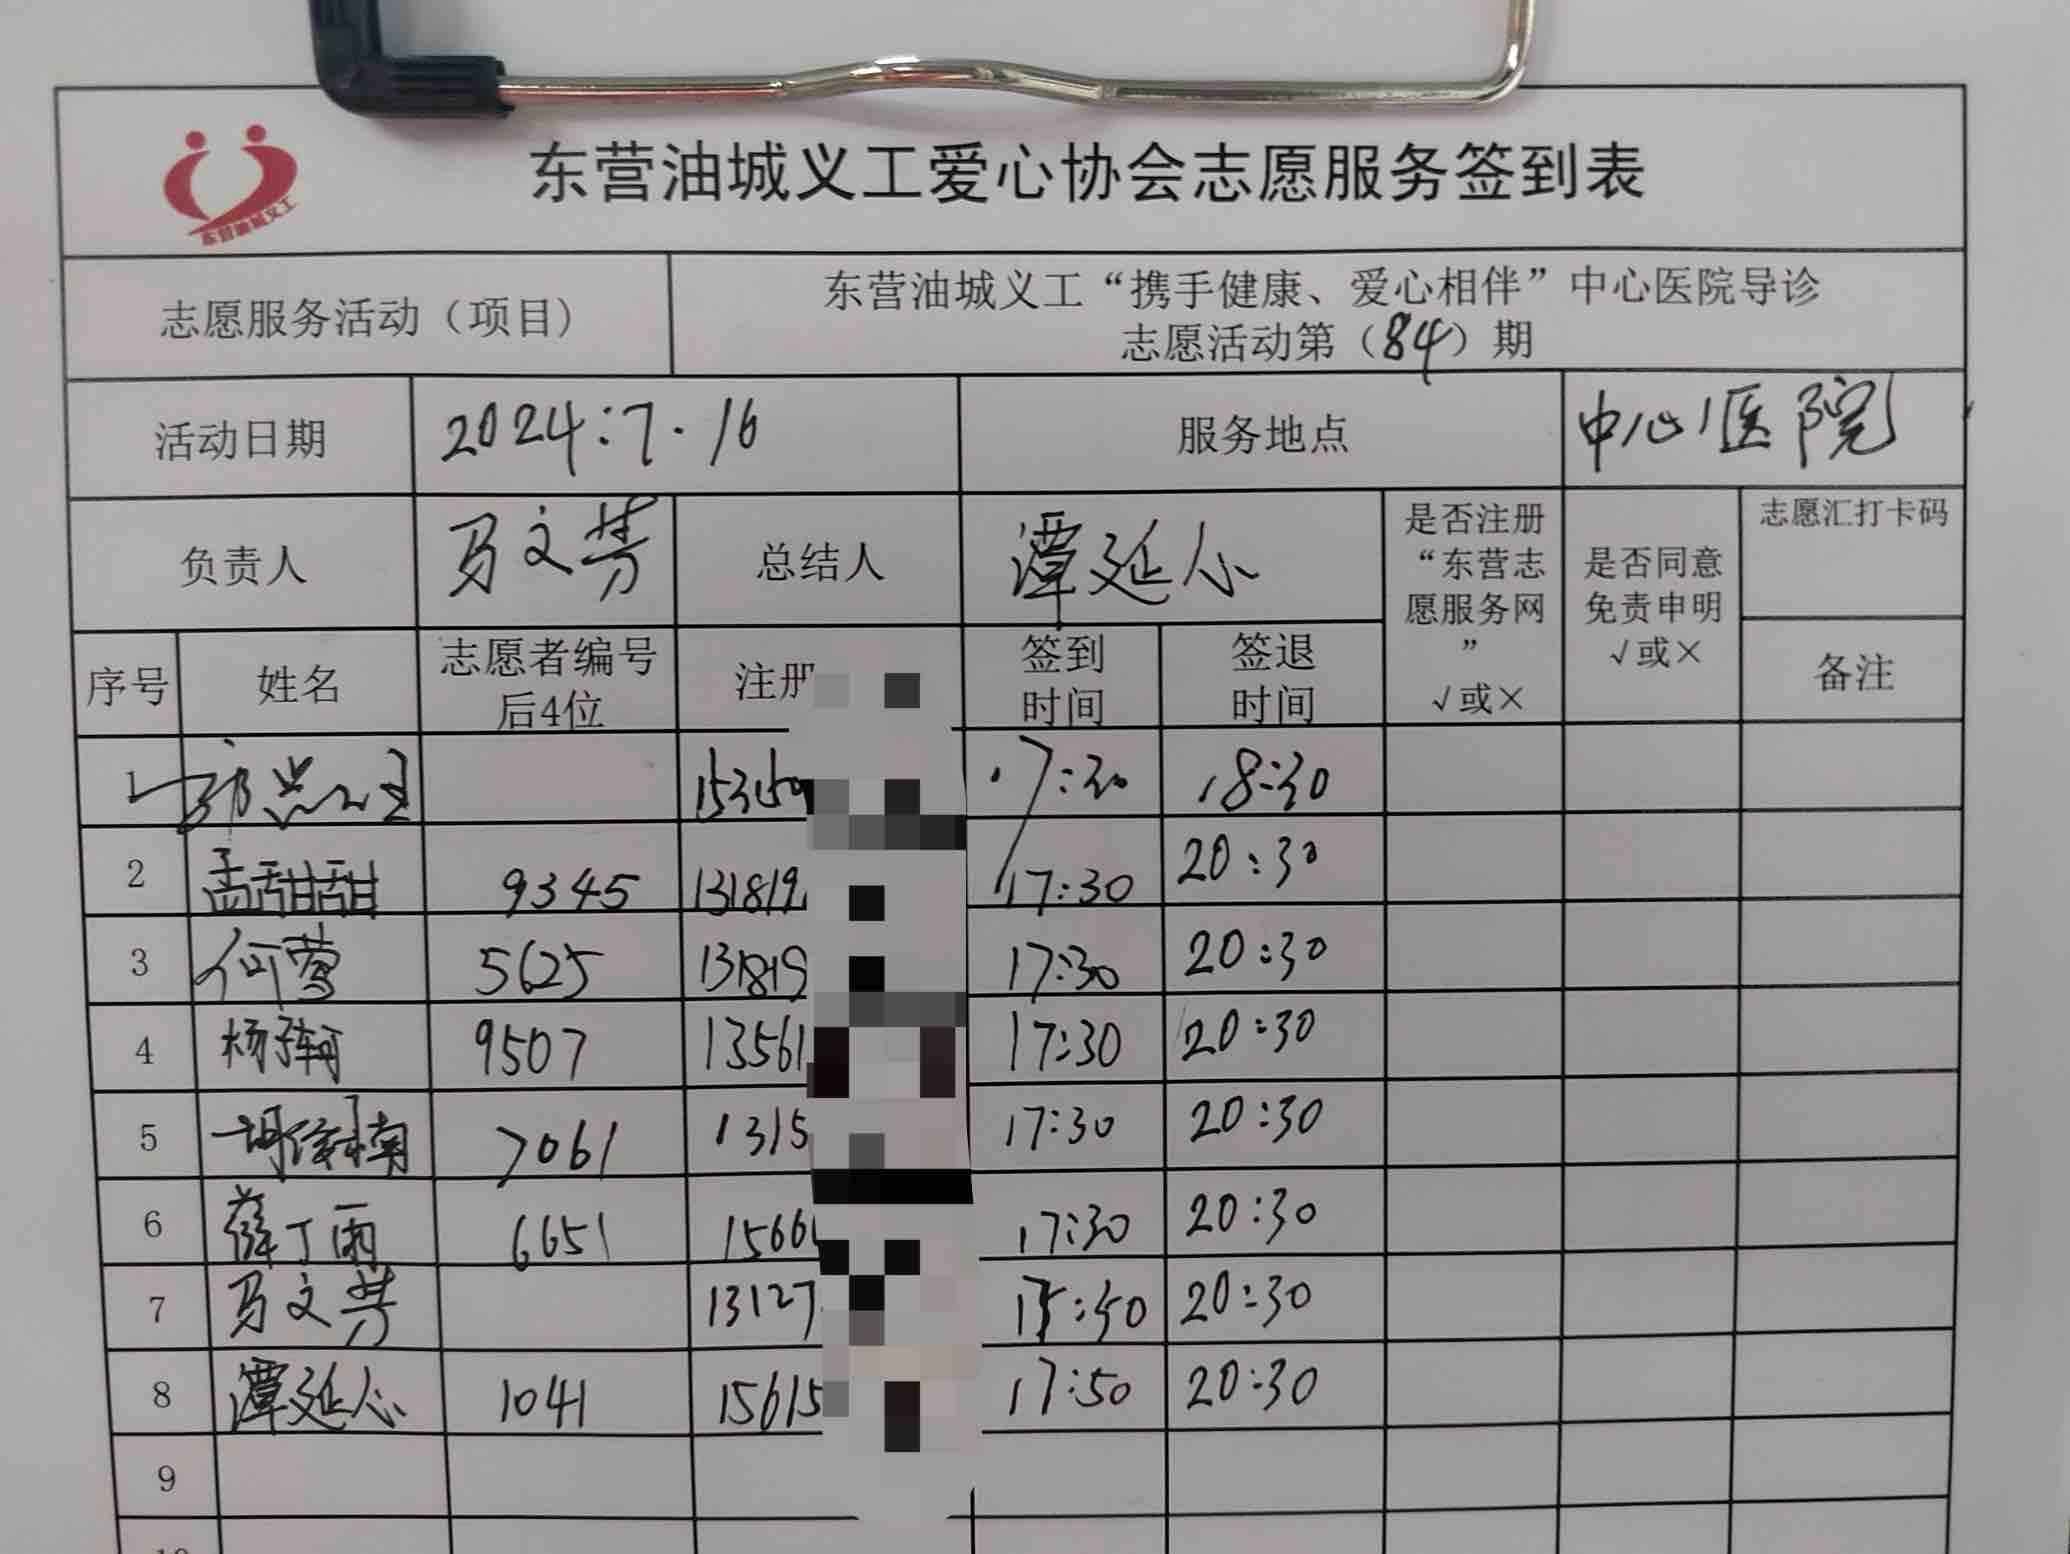 东营油城义工
东营油城义工爱心协会志愿服务签到表
志愿服务活动（项目） 东营油城义工“携手健康、爱心相伴”中心医院导诊
志愿活动第（84）期
活动日期 2024.7.16 服务地点 中心医院
负责人 马文芳 总结人 潭延心 是否注册
“东营志
愿服务网
”
√或× 是否同意
免责申明
√或× 志愿汇打卡码
序号 姓名 志愿者编号
后4位 注册 签到
时间 签退
时间 备注
1 153150 17:30 18:30
2 孟甜甜 9345 131819 17:30 20:30
3 何莺 5625 131819 17:30 20:30
4 杨轲 9507 13561 17:30 20:30
5 7061 1315 17:30 20:30
6 薛丁雨 6651 1566 17:30 20:30
7 马文芳 13127 :50 20:30
8 潭延心 1041 15615 17:50 20:30
9
10